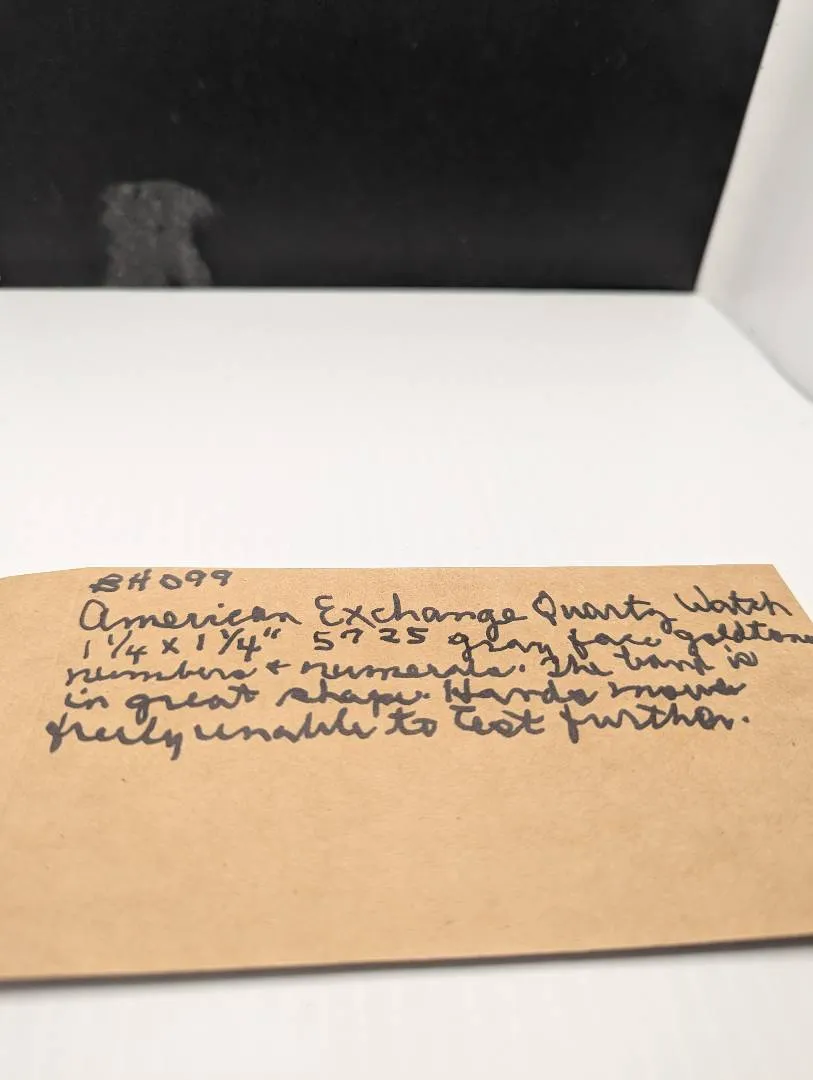 BH099
American Exchange Quartz Watch
1 1/4 x 1 1/4" 5725 gray face goldtone
numbers + numerals. The band is
in great shape. Hands move
freely unable to test further.